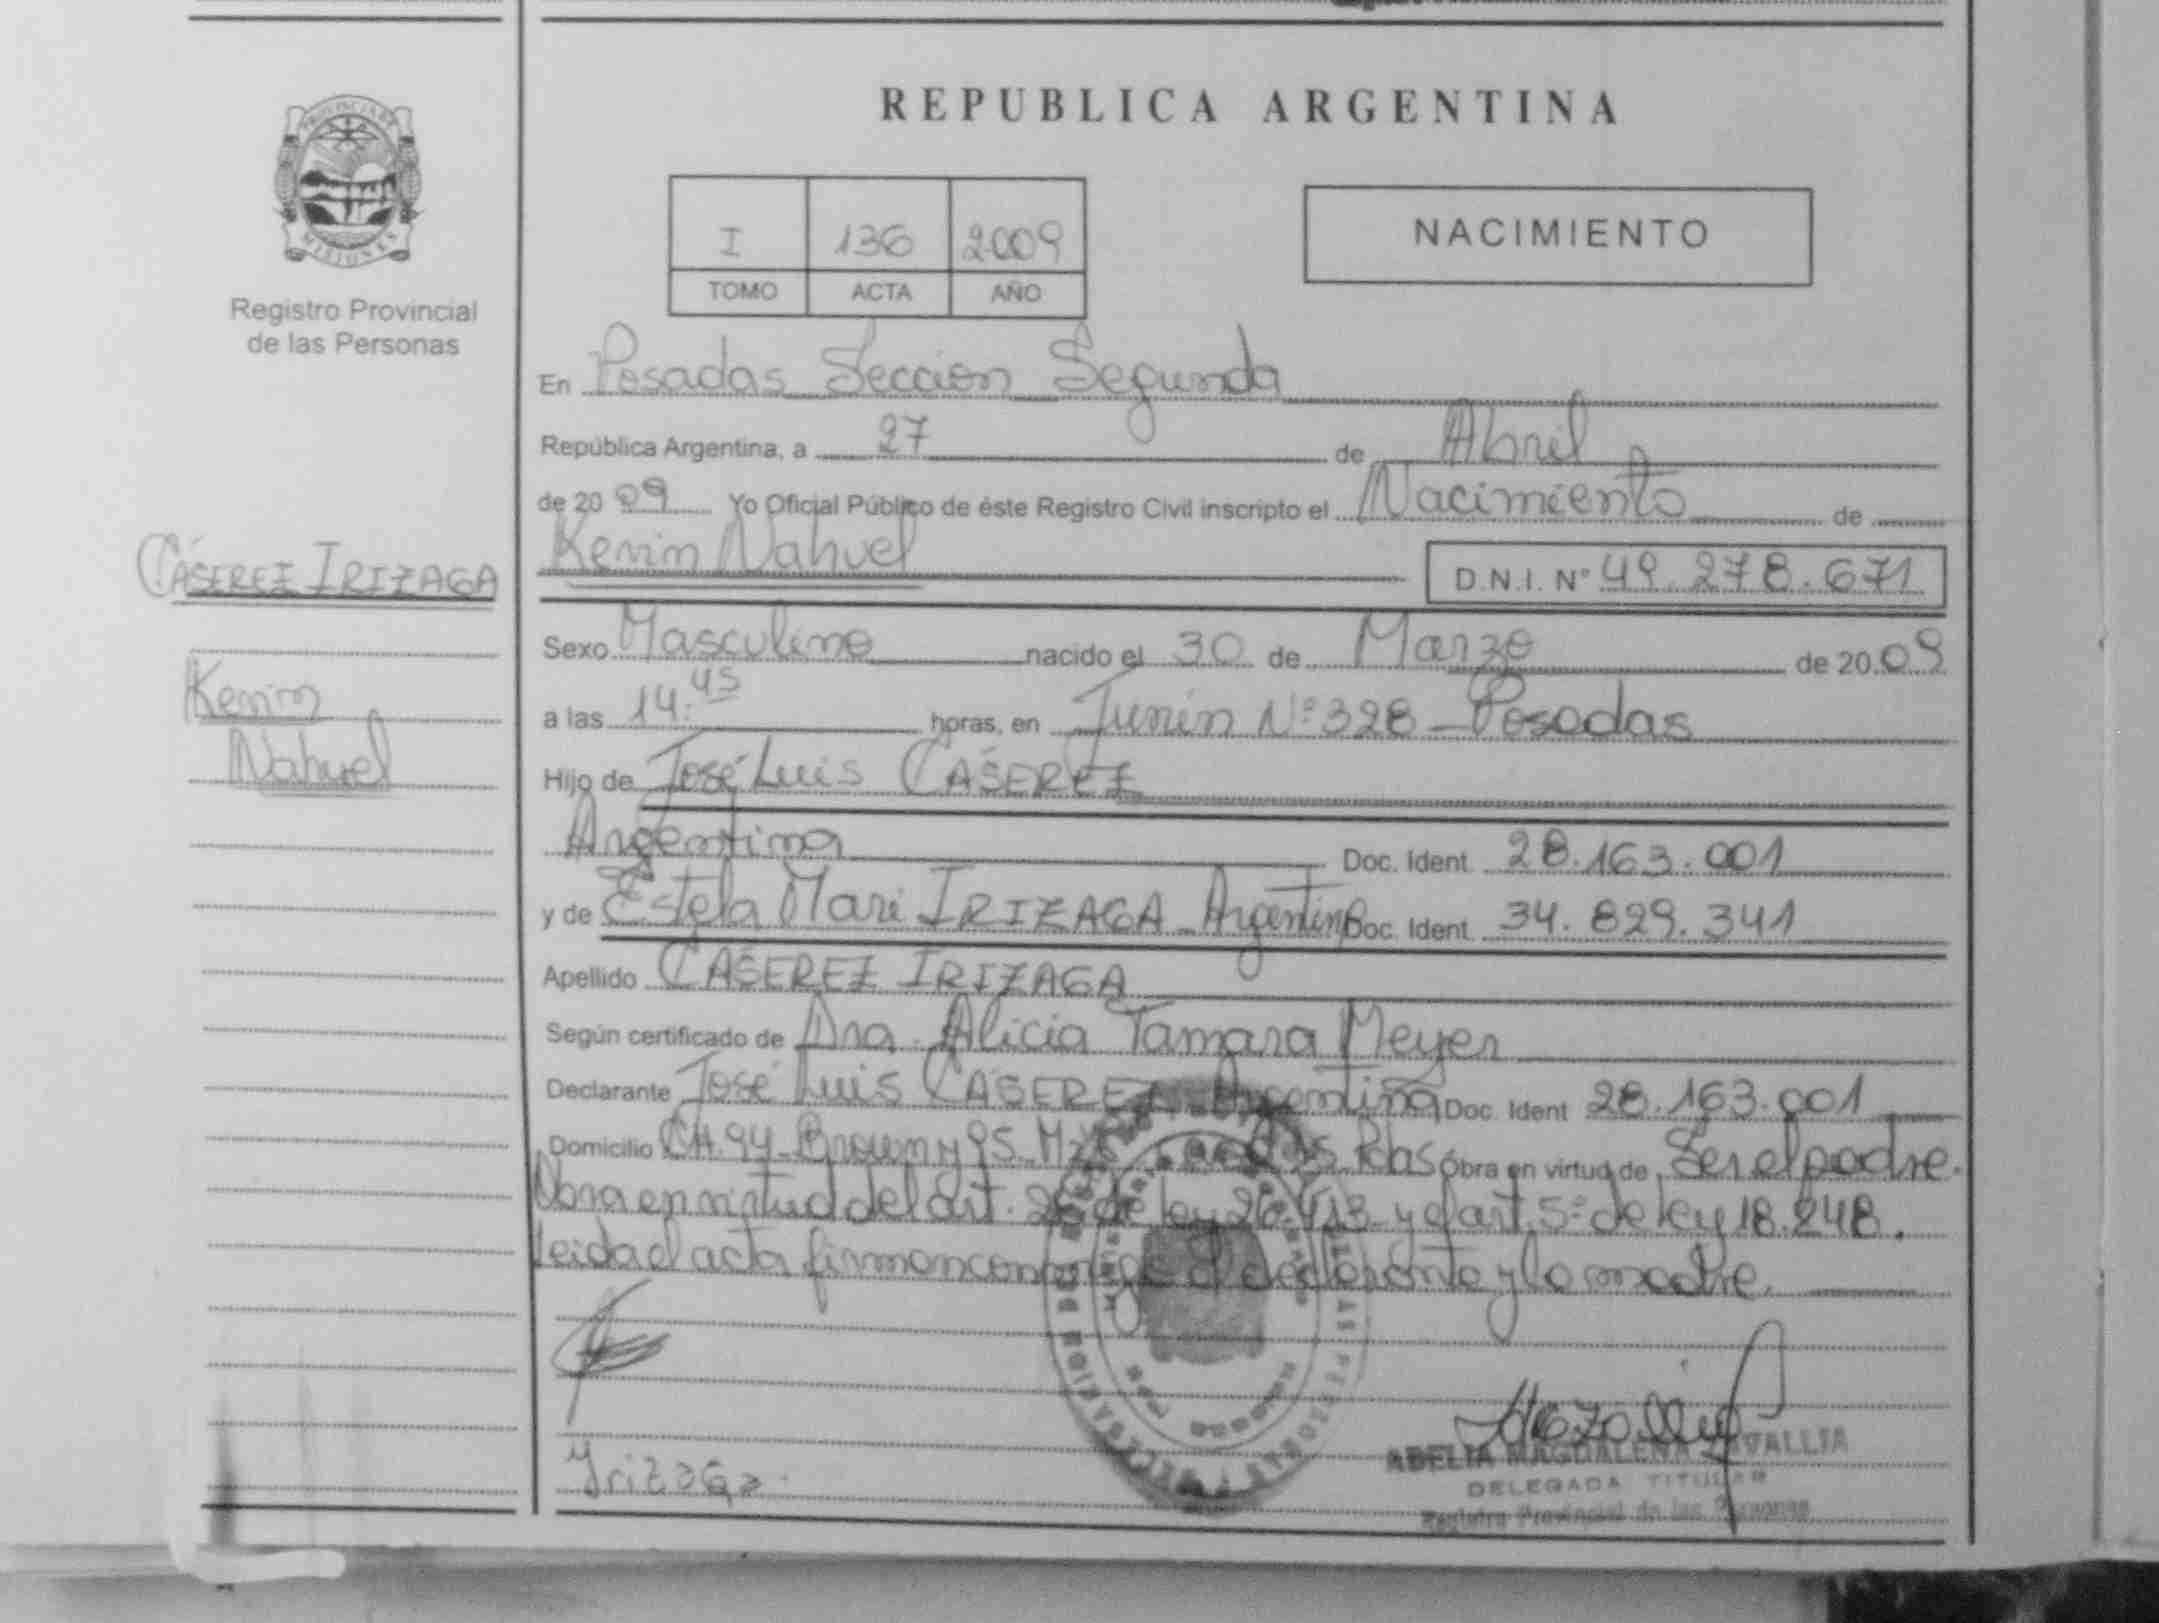 REPUBLICA ARGENTINA
PROVINCIA DE
MISIONES
Registro Provincial
de las Personas
I 136 2009
TOMO ACTA AÑO
NACIMIENTO
En Posadas Sección Segunda
República Argentina, a 27 de Abril
de 2009 Yo Oficial Público de éste Registro Civil inscripto el Nacimiento de
Kevin Nahuel D.N.I. Nº 49.278.671
CÁSEREZ IRIZAGA
Kevin
Nahuel
Sexo Masculino nacido el 30 de Marzo de 2009
a las 14:45 horas, en Junín Nº 328 - Posadas
Hijo de José Luis CÁSEREZ
Argentina Doc. Ident. 28.163.001
y de Estela Mari IRIZAGA Argentina Doc. Ident. 34.829.341
Apellido CÁSEREZ IRIZAGA
Según certificado de Dra. Alicia Tamara Meyer
Declarante José Luis CÁSEREZ Argentina Doc. Ident 28.163.001
Domicilio CH. 94 - Brown y 95 Mz Pdas Obra en virtud de Ser el padre.
Obra en virtud del art. 26 de ley 26.413 y el art. 5º de ley 18.248.
Leida el acta firman conmigo el declarante y la madre.
Yrizaga
ABELIA MAGDALENA ZAVALLIA
DELEGADA TITULAR
Registro Provincial de las Personas